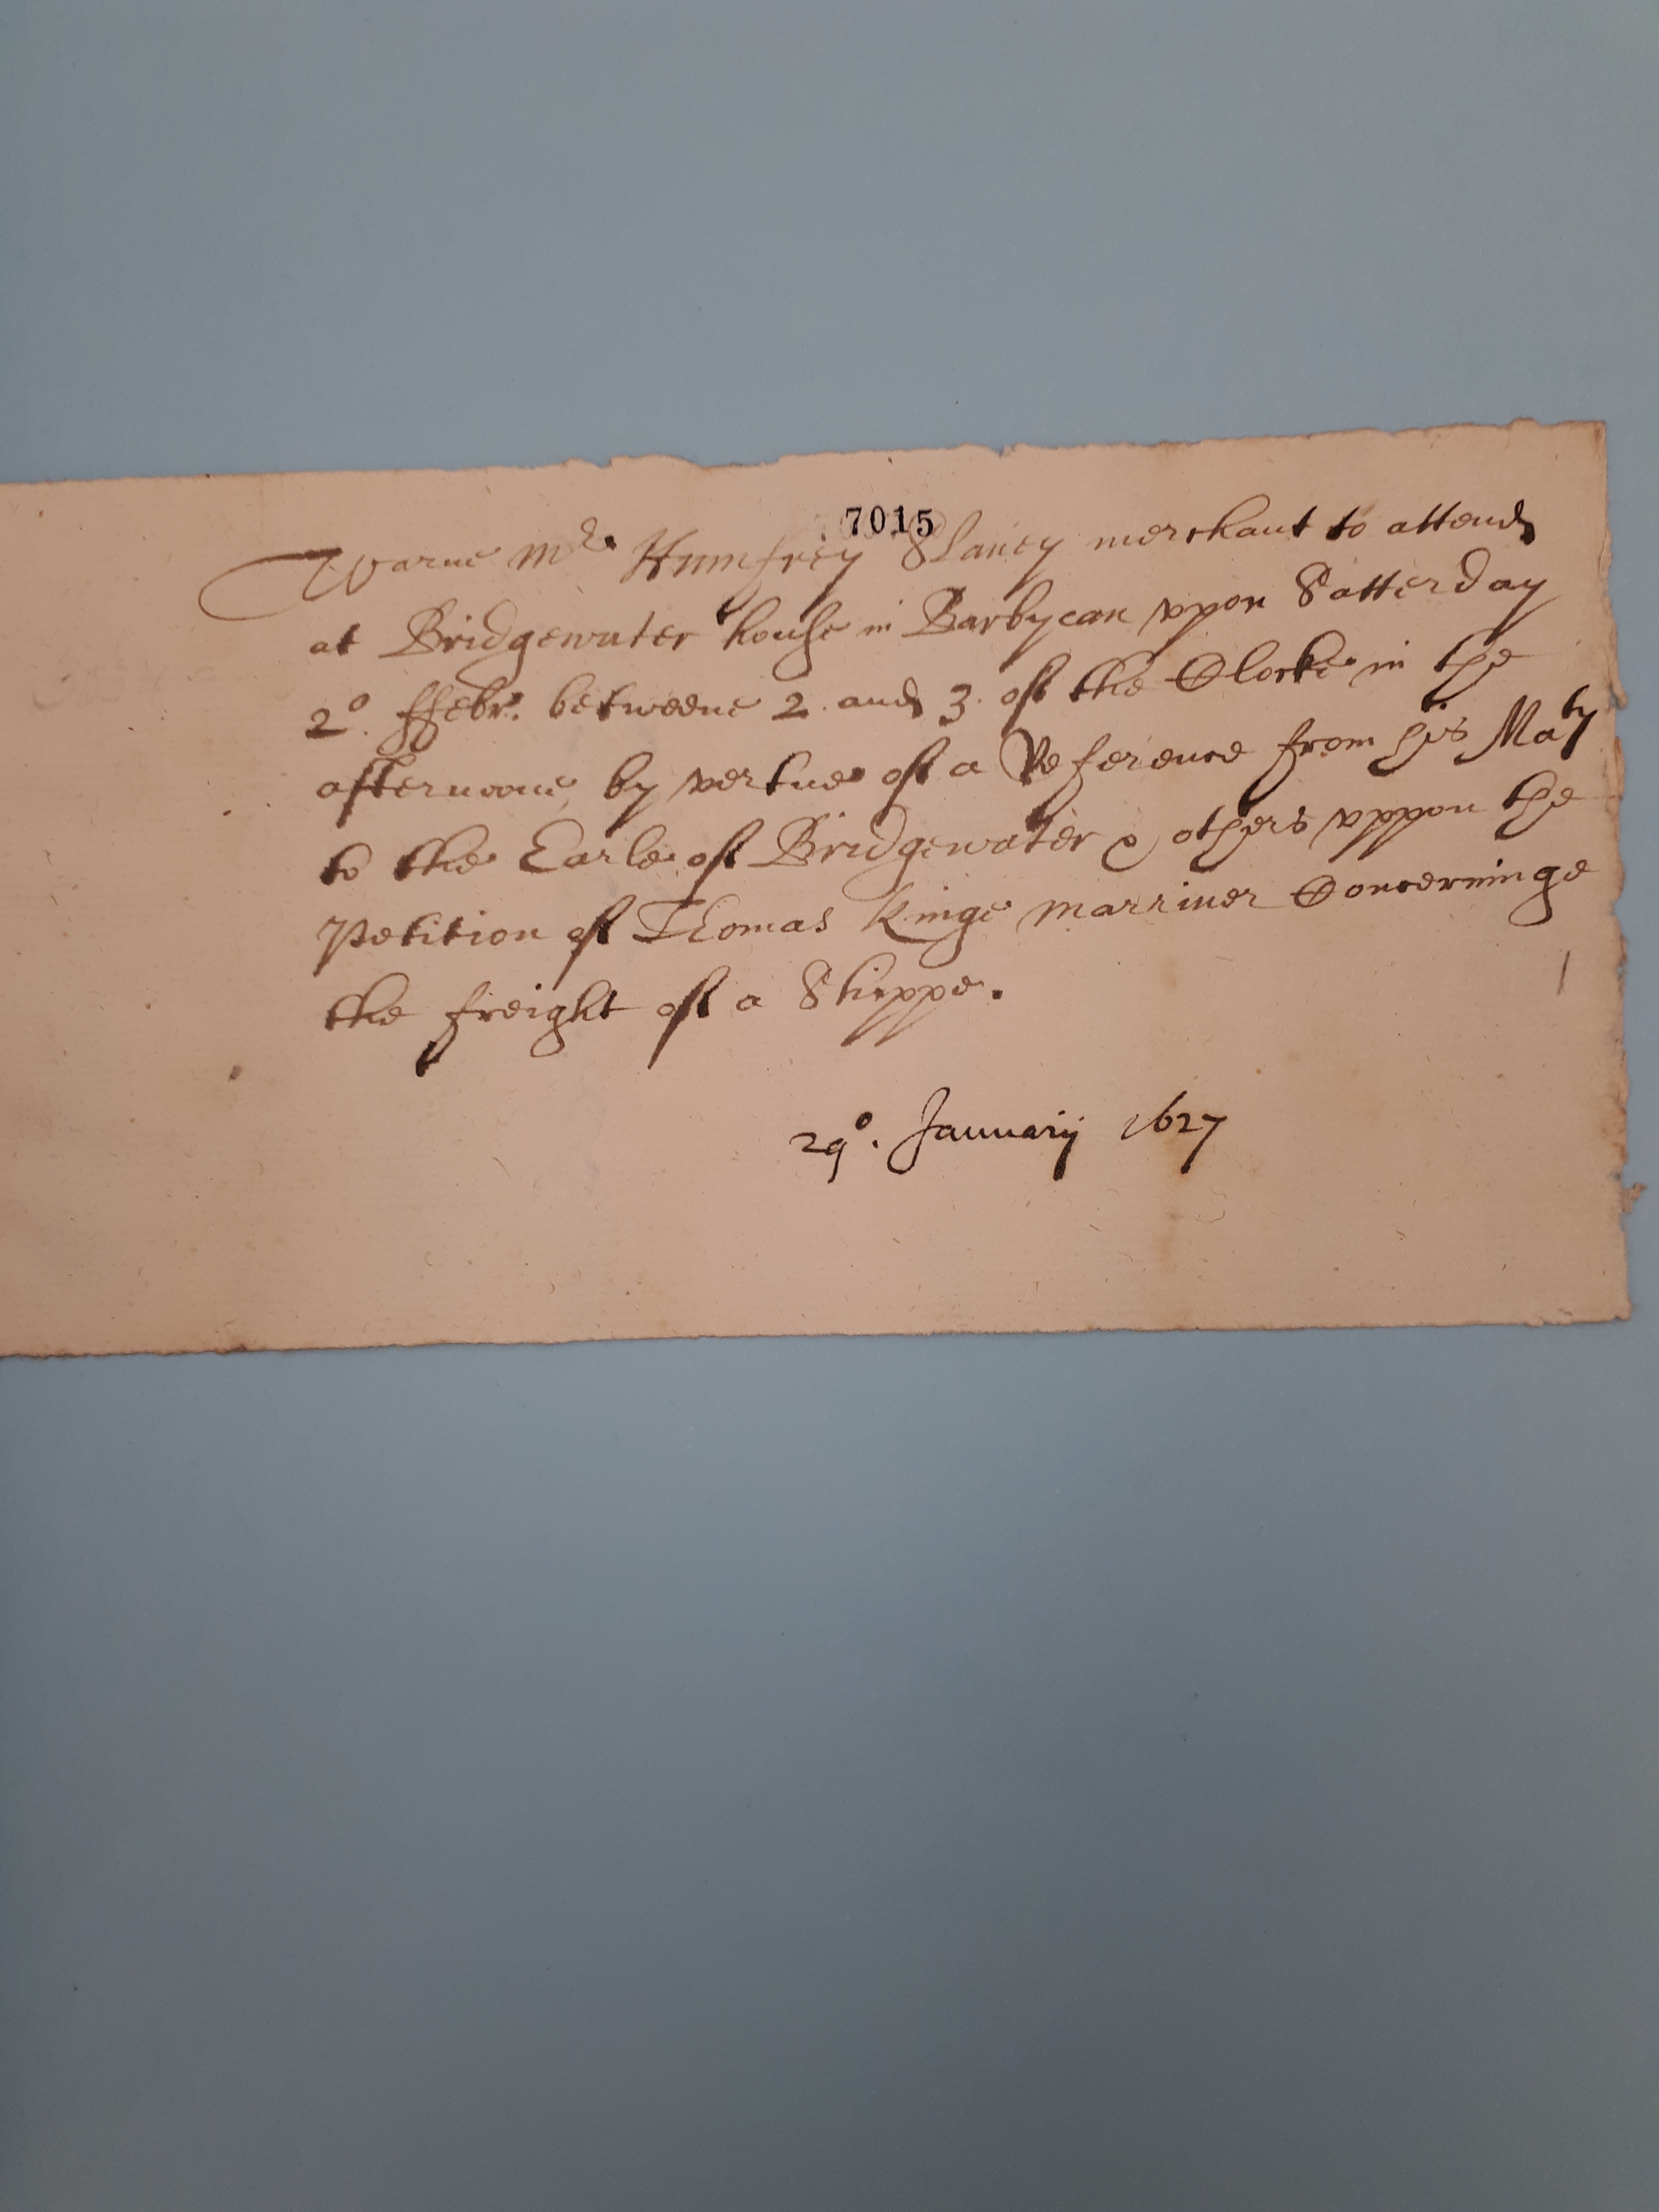 7015
Warne Mr. Humfrey Slaney merchant to attend
at Bridgewater house in Barbycan vpon Satterday
2o. ffebr. betweene 2. and 3. of the Clocke in the
afternoone, by vertue of a Reference from his Maty
to the Earle of Bridgewater & others vppon the
Petition of Thomas Kinge marriner Concerninge
the freight of a Shippe.
29o. Januarij 1627